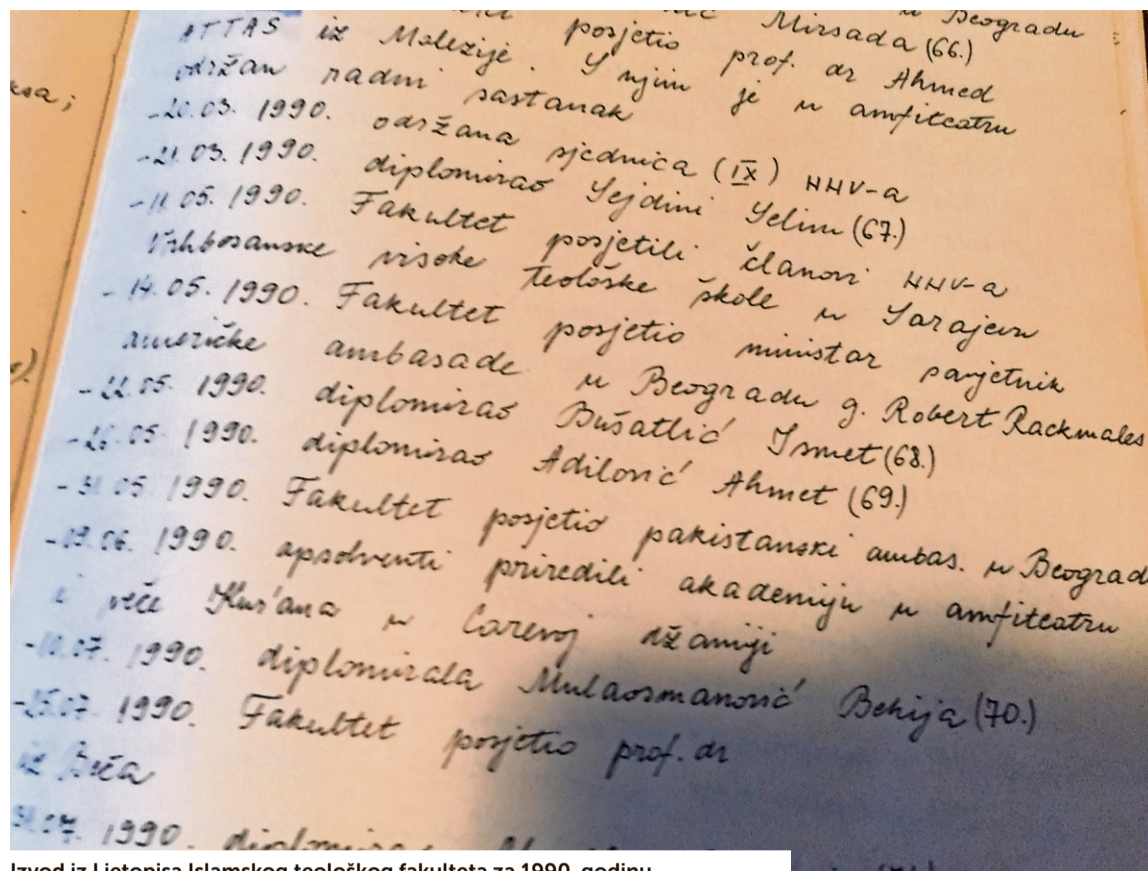 u Beogradu
Mirsada (66.)
posjetio prof. dr Ahmed
ATTAS iz Malezije. S njim je u amfiteatru
održan radni sastanak
-20.03. 1990. održana sjednica (IX) NNV-a
-21.03. 1990. diplomirao Sejdini Selim (67.)
-11.05. 1990. Fakultet posjetili članovi NNV-a
Vrhbosanske visoke teološke škole u Sarajevu
-14.05. 1990. Fakultet posjetio ministar savjetnik
američke ambasade u Beogradu g. Robert Rackmales
-22.05. 1990. diplomirao Bušatlić Ismet (68.)
-26.05. 1990. diplomirao Adilović Ahmet (69.)
-31.05. 1990. Fakultet posjetio pakistanski ambas. u Beograd
-09.06. 1990. apsolventi priredili akademiju u amfiteatru
i veče Kur'ana u Carevoj džamiji
-10.07. 1990. diplomirala Mulaosmanović Behija (70.)
-25.07. 1990. Fakultet posjetio prof. dr
iz Beča
31.07. 1990.
Izvod iz Ljetopisa Islamskog teološkog fakulteta za 1990. godinu